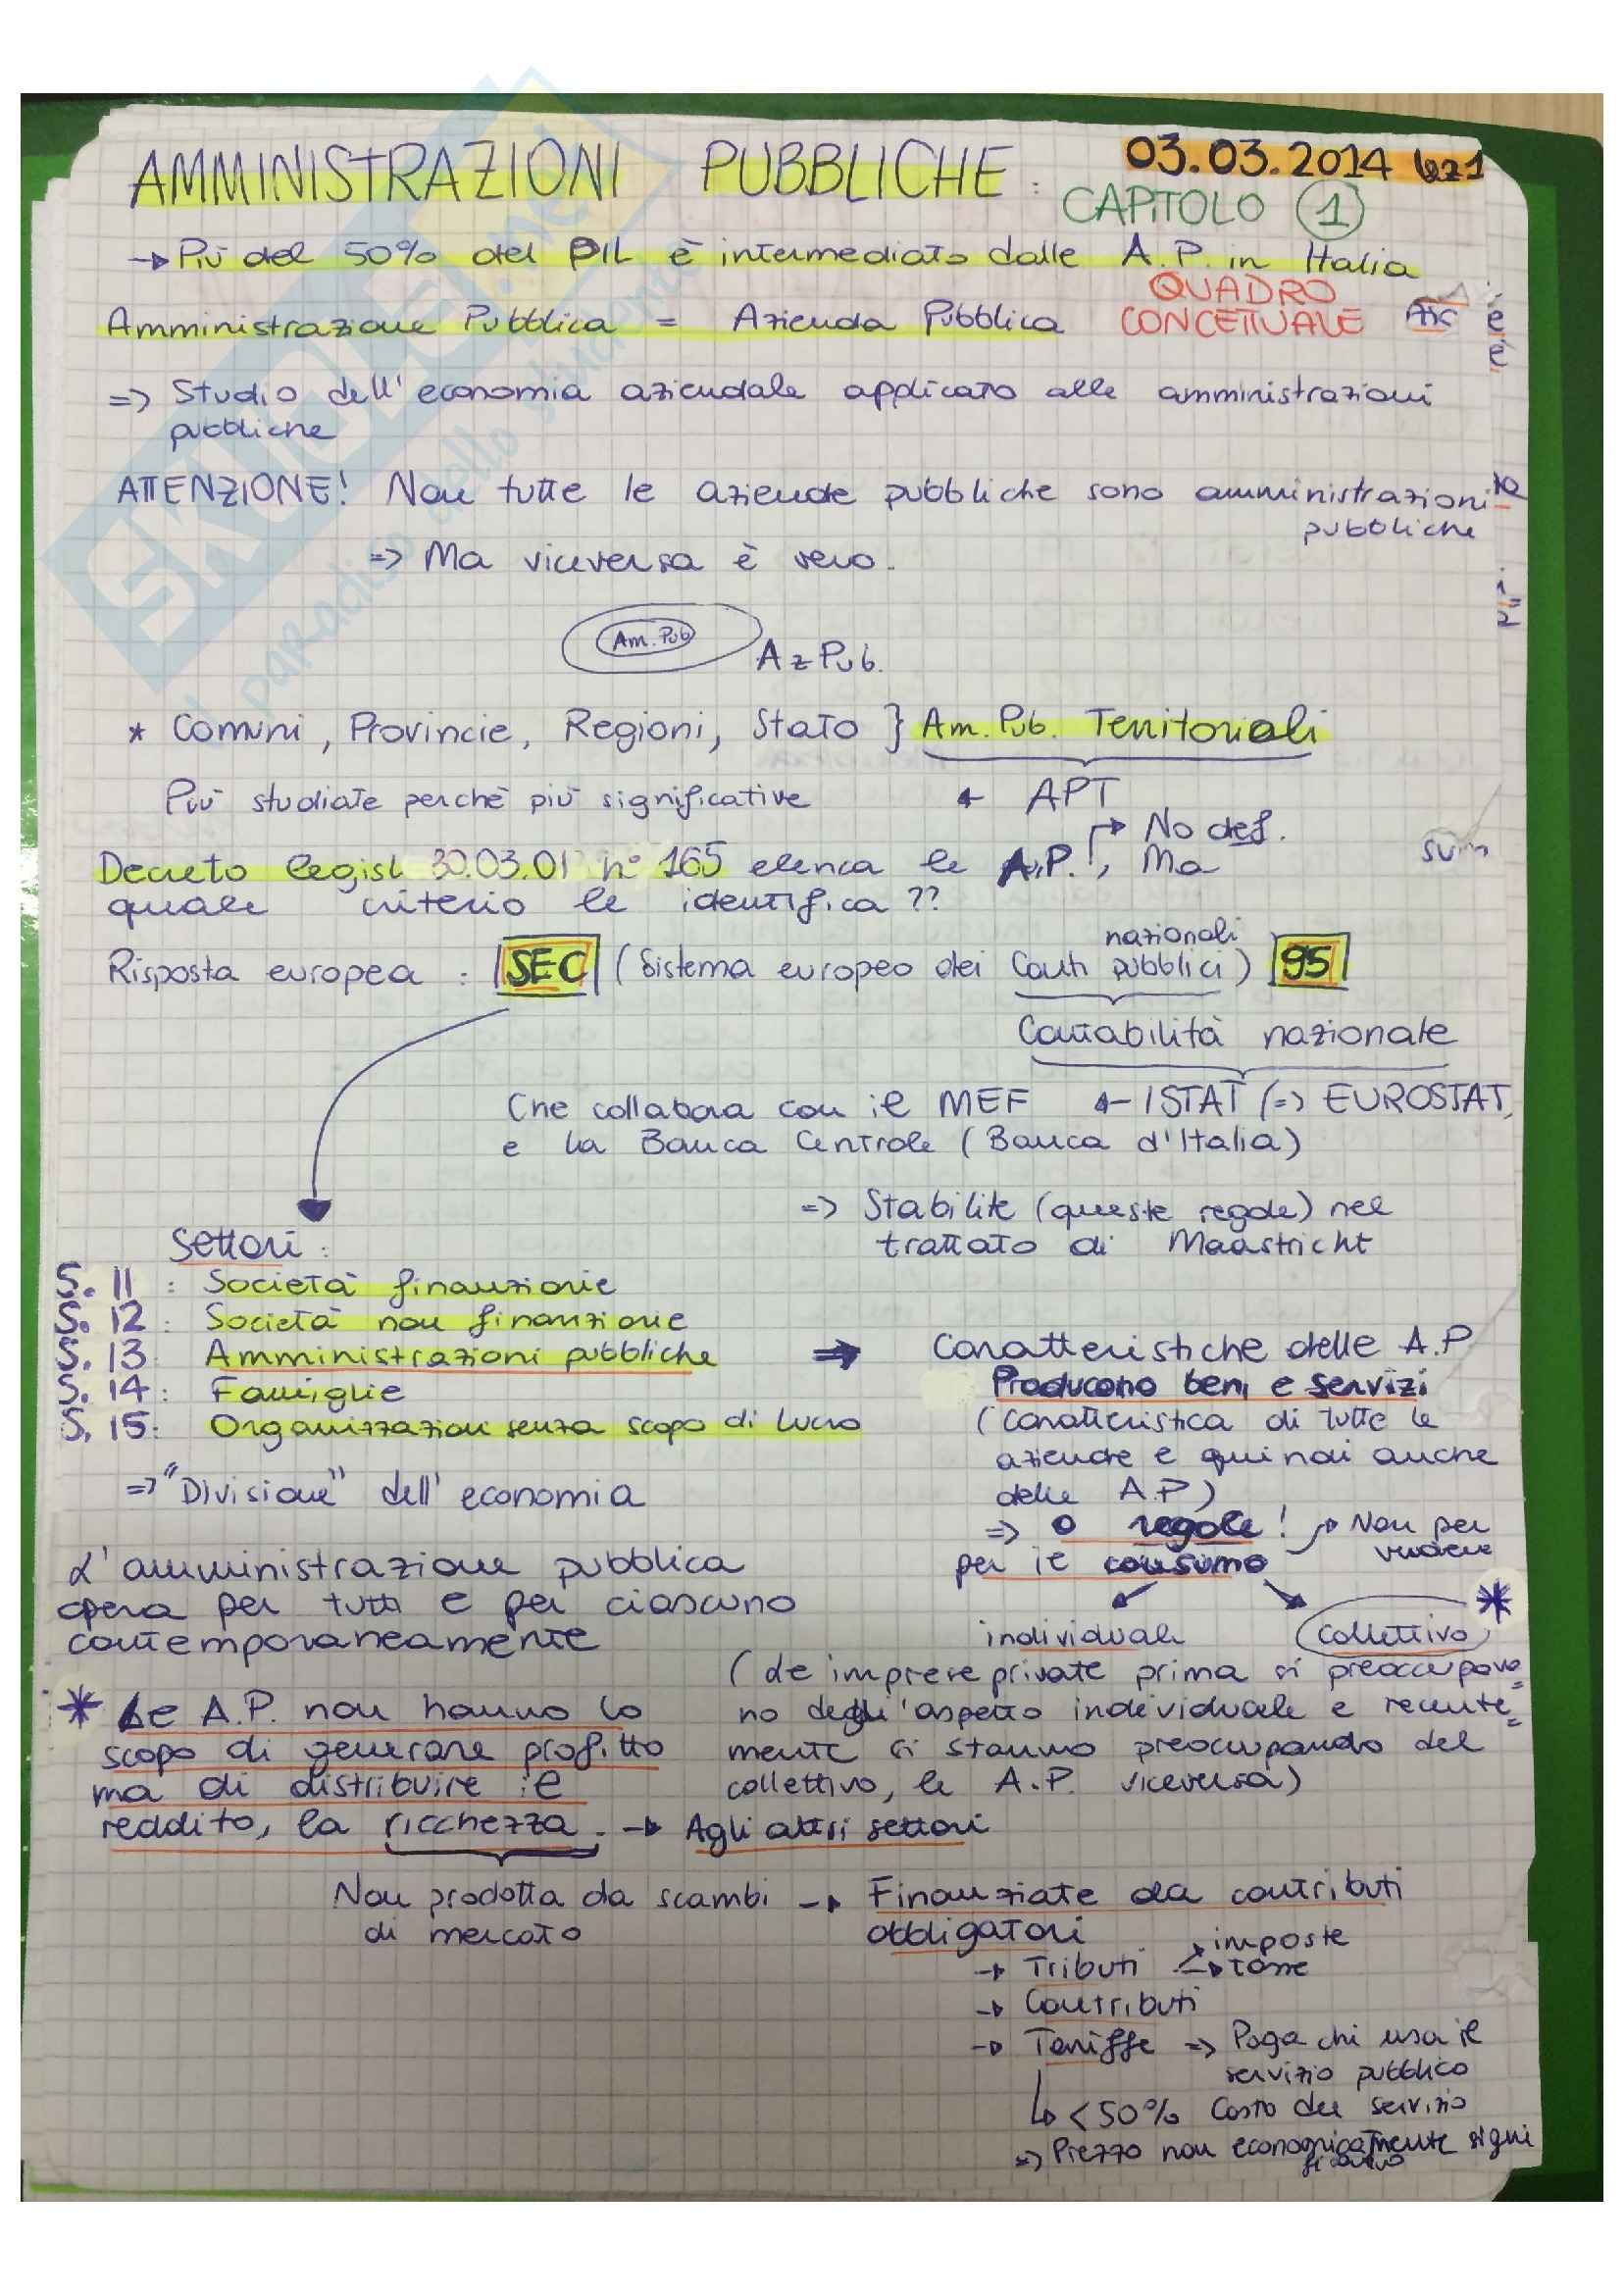 AMMINISTRAZIONI PUBBLICHE :
03.03.2014 lez1
CAPITOLO 1
→ Più del 50% del PIL è intermediato dalle A.P. in Italia
QUADRO
CONCETTUALE
Amministrazione Pubblica = Azienda Pubblica
=> Studio dell'economia aziendale applicato alle amministrazioni
pubbliche
ATTENZIONE! Non tutte le aziende pubbliche sono amministrazioni
pubbliche
=> Ma viceversa è vero.
Am. Pub
Az Pub.
* Comuni, Provincie, Regioni, Stato } Am. Pub. Territoriali
Più studiate perchè più significative ← APT
→ No def.
Decreto legisl 30.03.01 n° 165 elenca le A.P.!, Ma
quale criterio le identifica??
nazionali
Risposta europea : |SEC| (Sistema europeo dei Conti pubblici) |95|
Contabilità nazionale
Che collabora con il MEF ← ISTAT (=> EUROSTAT,
e la Banca Centrale (Banca d'Italia)
=> Stabilite (queste regole) nel
trattato di Maastricht
Settori :
S. 11 : Società finanziarie
S. 12 : Società non finanziarie
S. 13 : Amministrazioni pubbliche => Caratteristiche delle A.P
S. 14 : Famiglie
S. 15 : Organizzazioni senza scopo di lucro
=> "Divisione" dell'economia
Producono beni e servizi
(Caratteristica di tutte le
aziende e quindi anche
delle A.P)
=> 0 regole! → Non per
vendere
per il consumo
individuale
collettivo *
(Le imprese private prima si preoccupava=
no degli'aspetto individuale e recente=
mente si stanno preoccupando del
collettivo, le A.P. viceversa)
L'amministrazione pubblica
opera per tutti e per ciascuno
contemporaneamente
* Le A.P. non hanno lo
scopo di generare profitto
ma di distribuire il
reddito, la ricchezza. → Agli altri settori
Non prodotta da scambi → Finanziate da contributi
di mercato
obbligatori
→ Tributi → imposte
→ tasse
→ Contributi
→ Tariffe => Paga chi usa il
servizio pubblico
↳ <50% Costo del servizio
=> Prezzo non economicamente signi
ficativo
SKUOLA.net
il paradiso dello studente